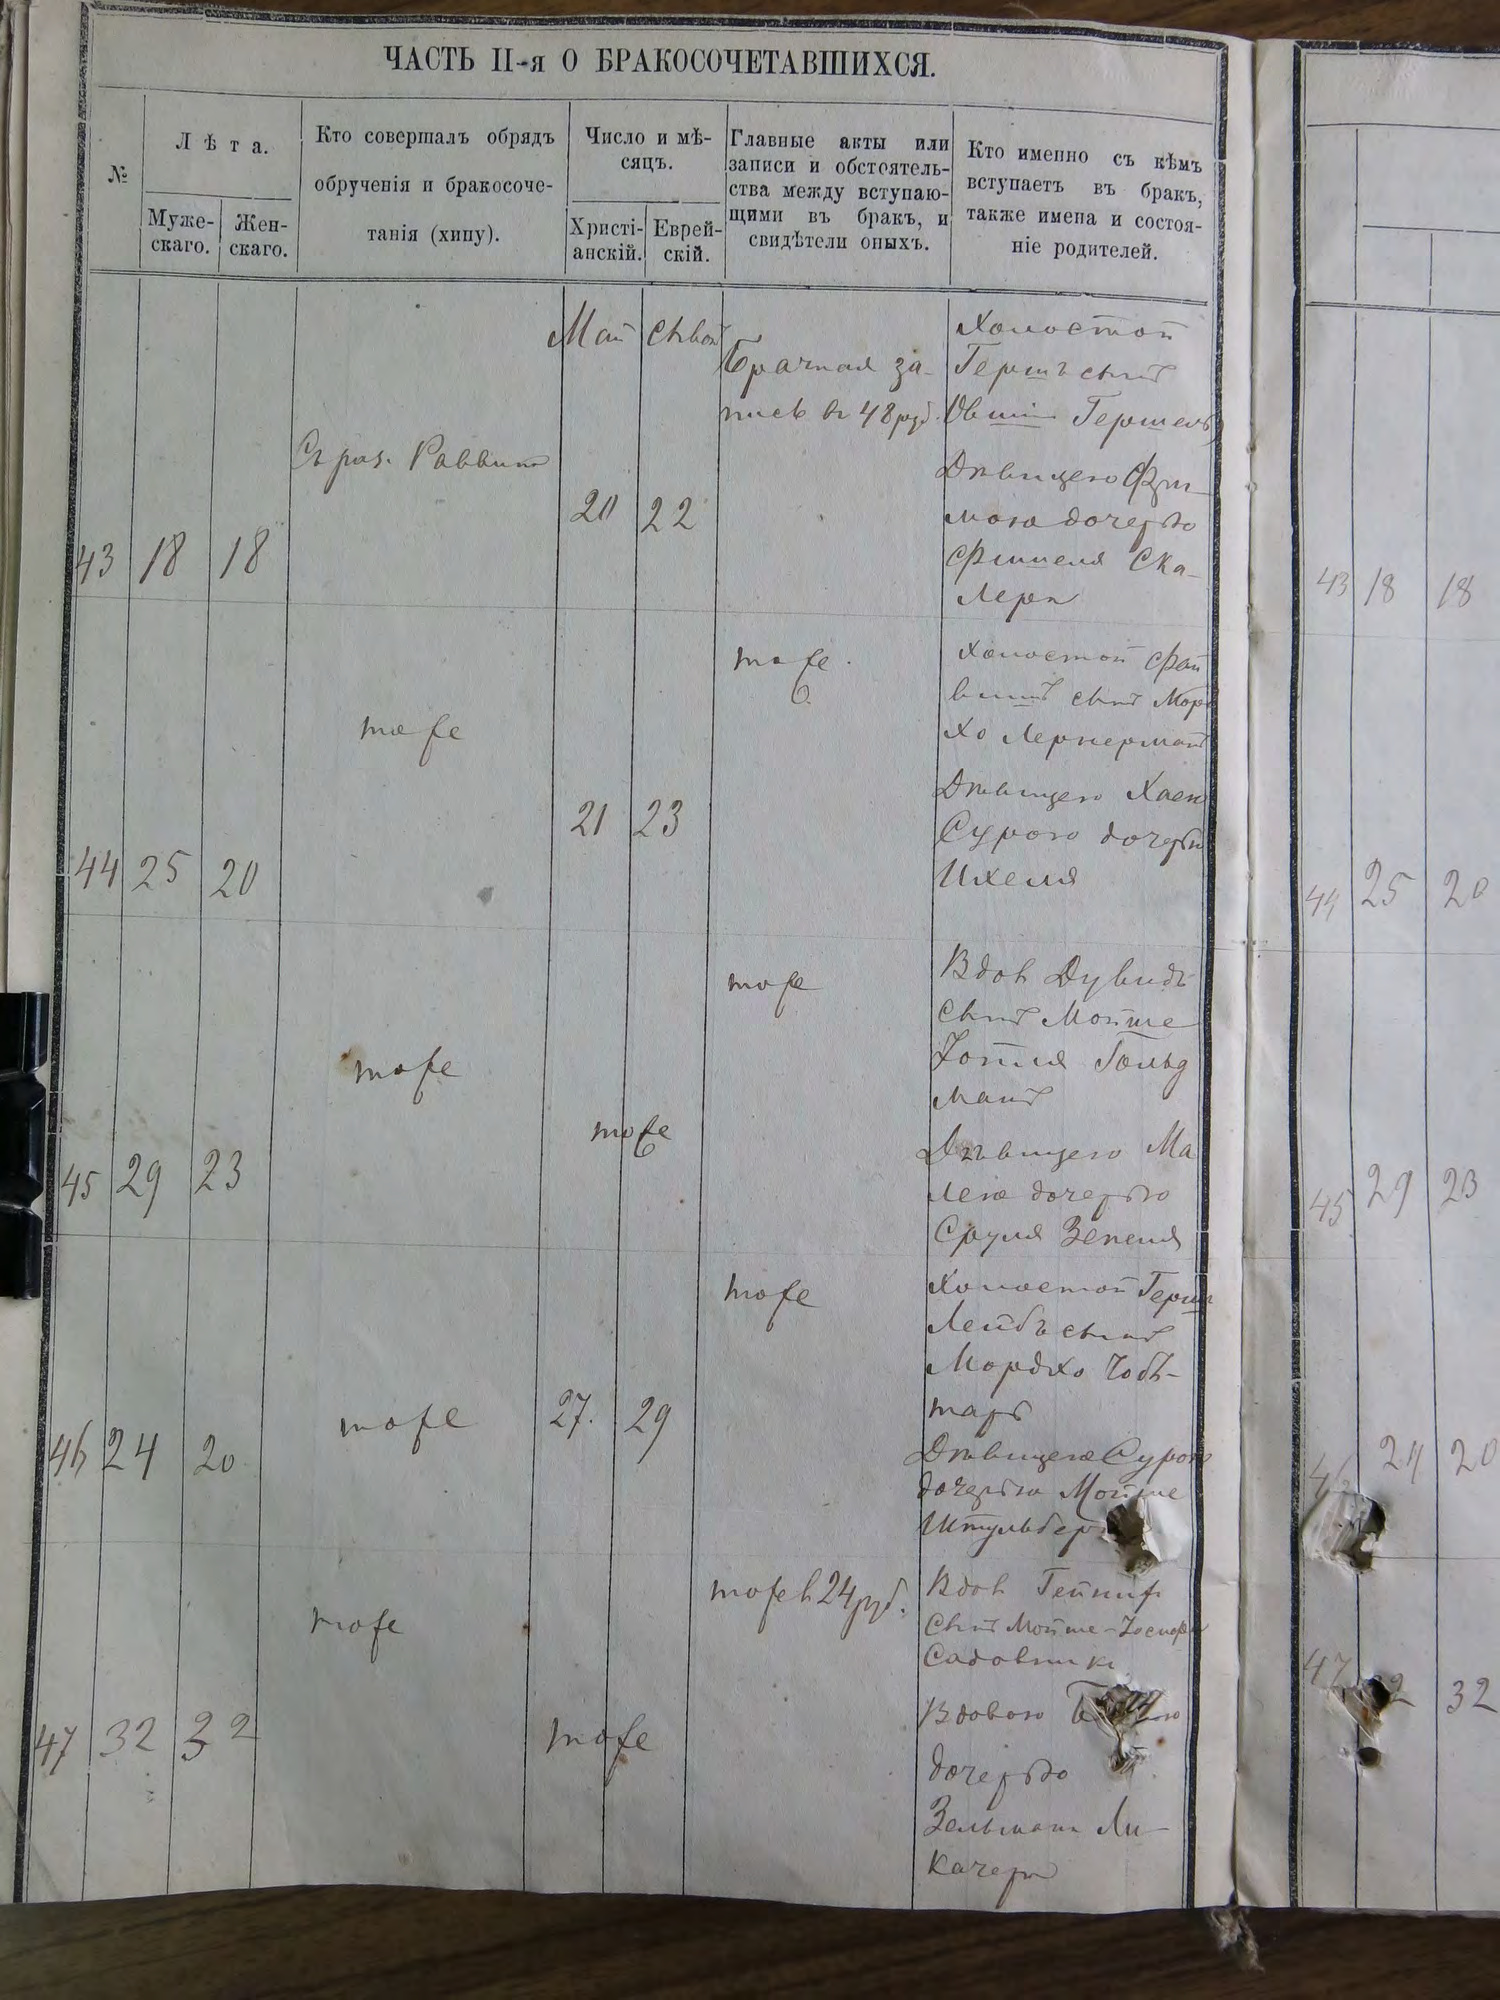 ЧАСТЬ II-я О БРАКОСОЧЕТАВШИХСЯ.
№
Лѣта.
Муже-
скаго.
Жен-
скаго.
Кто совершалъ обрядъ
обрученія и бракосоче-
танія (хипу).
Число и мѣ-
сяцъ.
Христі-
анскій.
Еврей-
скій.
Главные акты или
записи и обстоятель-
ства между вступаю-
щими въ бракъ, и
свидѣтели оныхъ.
Кто именно съ кѣмъ
вступаетъ въ бракъ,
также имена и состоя-
ніе родителей.
Май Сивон
43 18 18
Раввин
20 22
Брачная за-
пись в 48 руб.
Холостой
Гершъ сынъ
Овшии
Дѣвицею
дочерью
Фишеля Ска-
лера
44 25 20
тоже
21 23
тоже
Холостой Фай
вишъ сынъ Мор
хо Лернерманъ
Дѣвицею Хаею
Сурою дочерью
Ихеля
45 29 23
тоже
тоже
тоже
Вдов Дувидъ
сынъ Мойше
Гольд
манъ
Дѣвицею Ма
лею дочерью
Сруля
46 24 20
тоже
27. 29
тоже
Холостой Гершъ
Лейбъ сынъ
Мордхо Чобѣ-
таръ
Дѣвицею Сурою
дочерью Мойше
Штульбер
47 32 32
тоже
тоже
тоже в 24 руб.
Вдов
сынъ Мойше-
Садовника
Вдовою
дочерью
Зельмана Ли-
качера
43 18 18
44 25 20
45 29 23
46 24 20
47 2 32